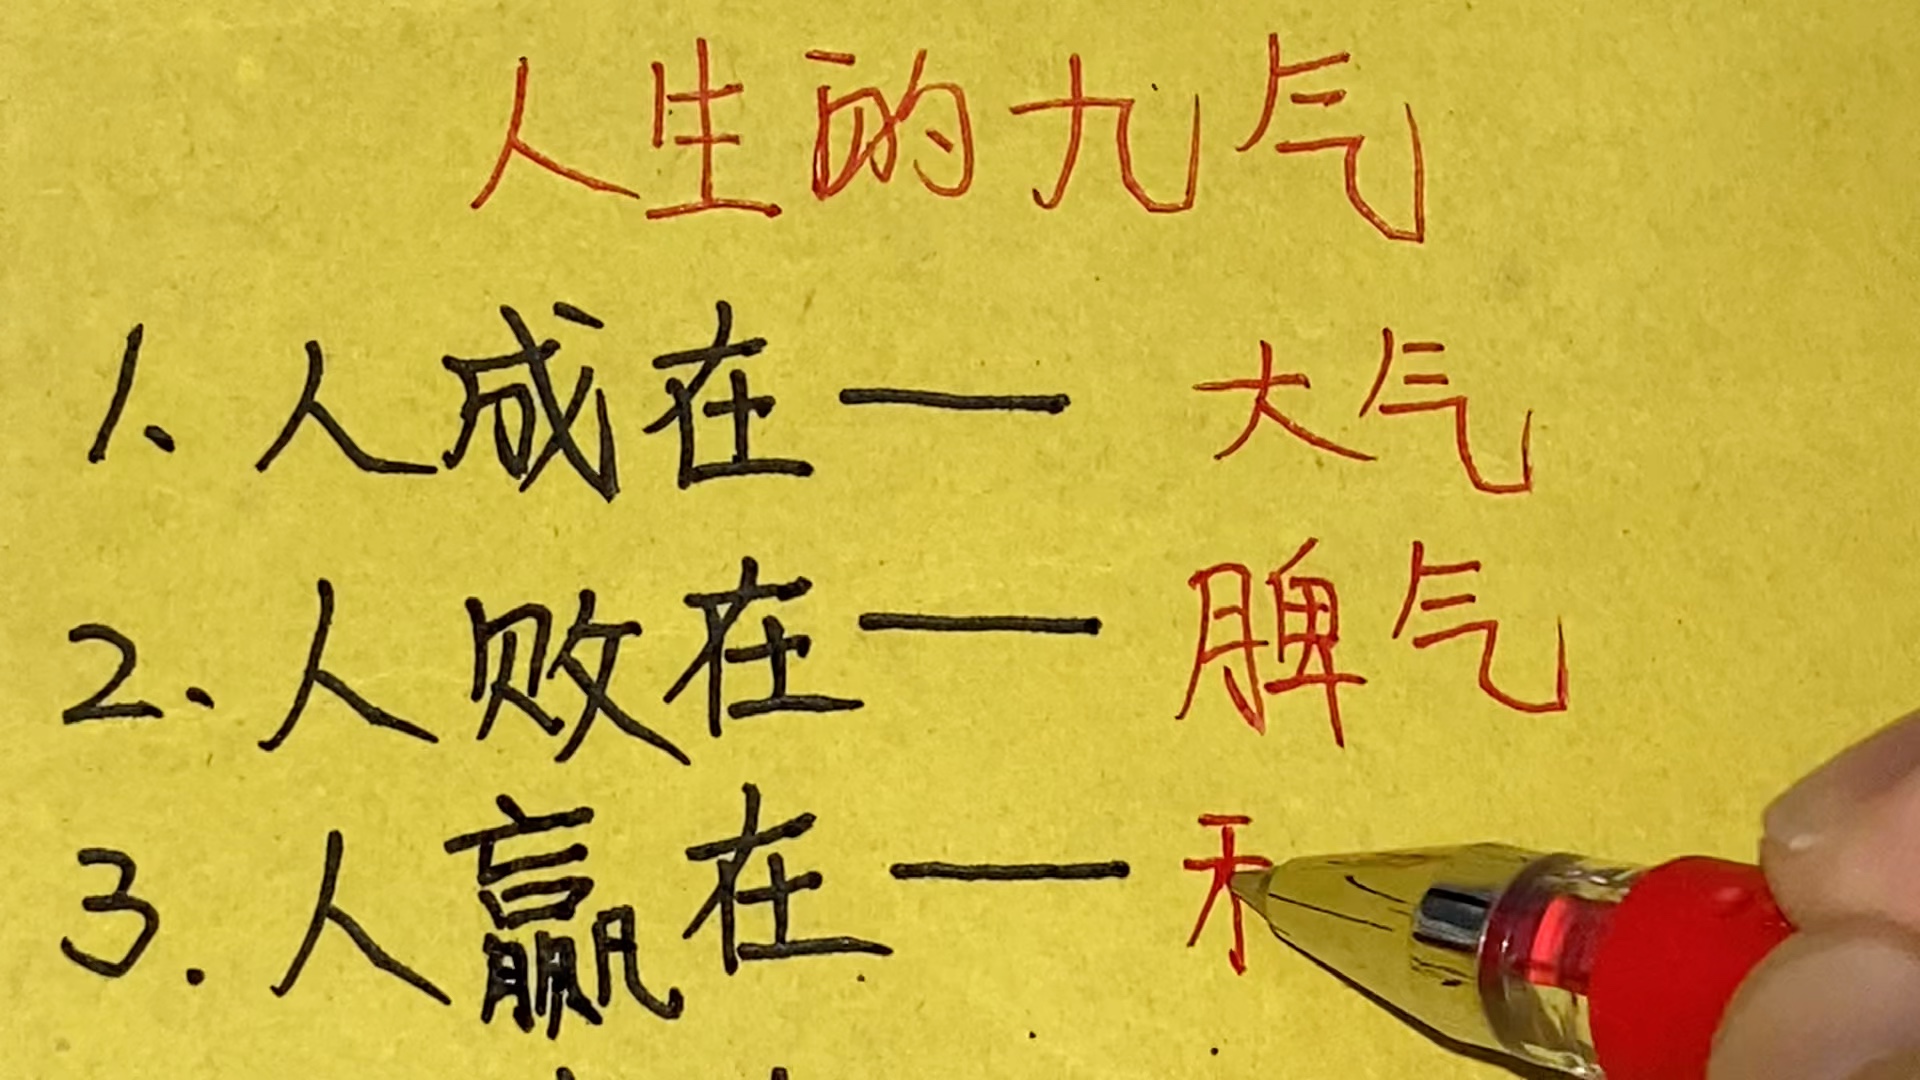 人生的九气
1. 人成在— 大气
2. 人败在— 脾气
3. 人赢在—